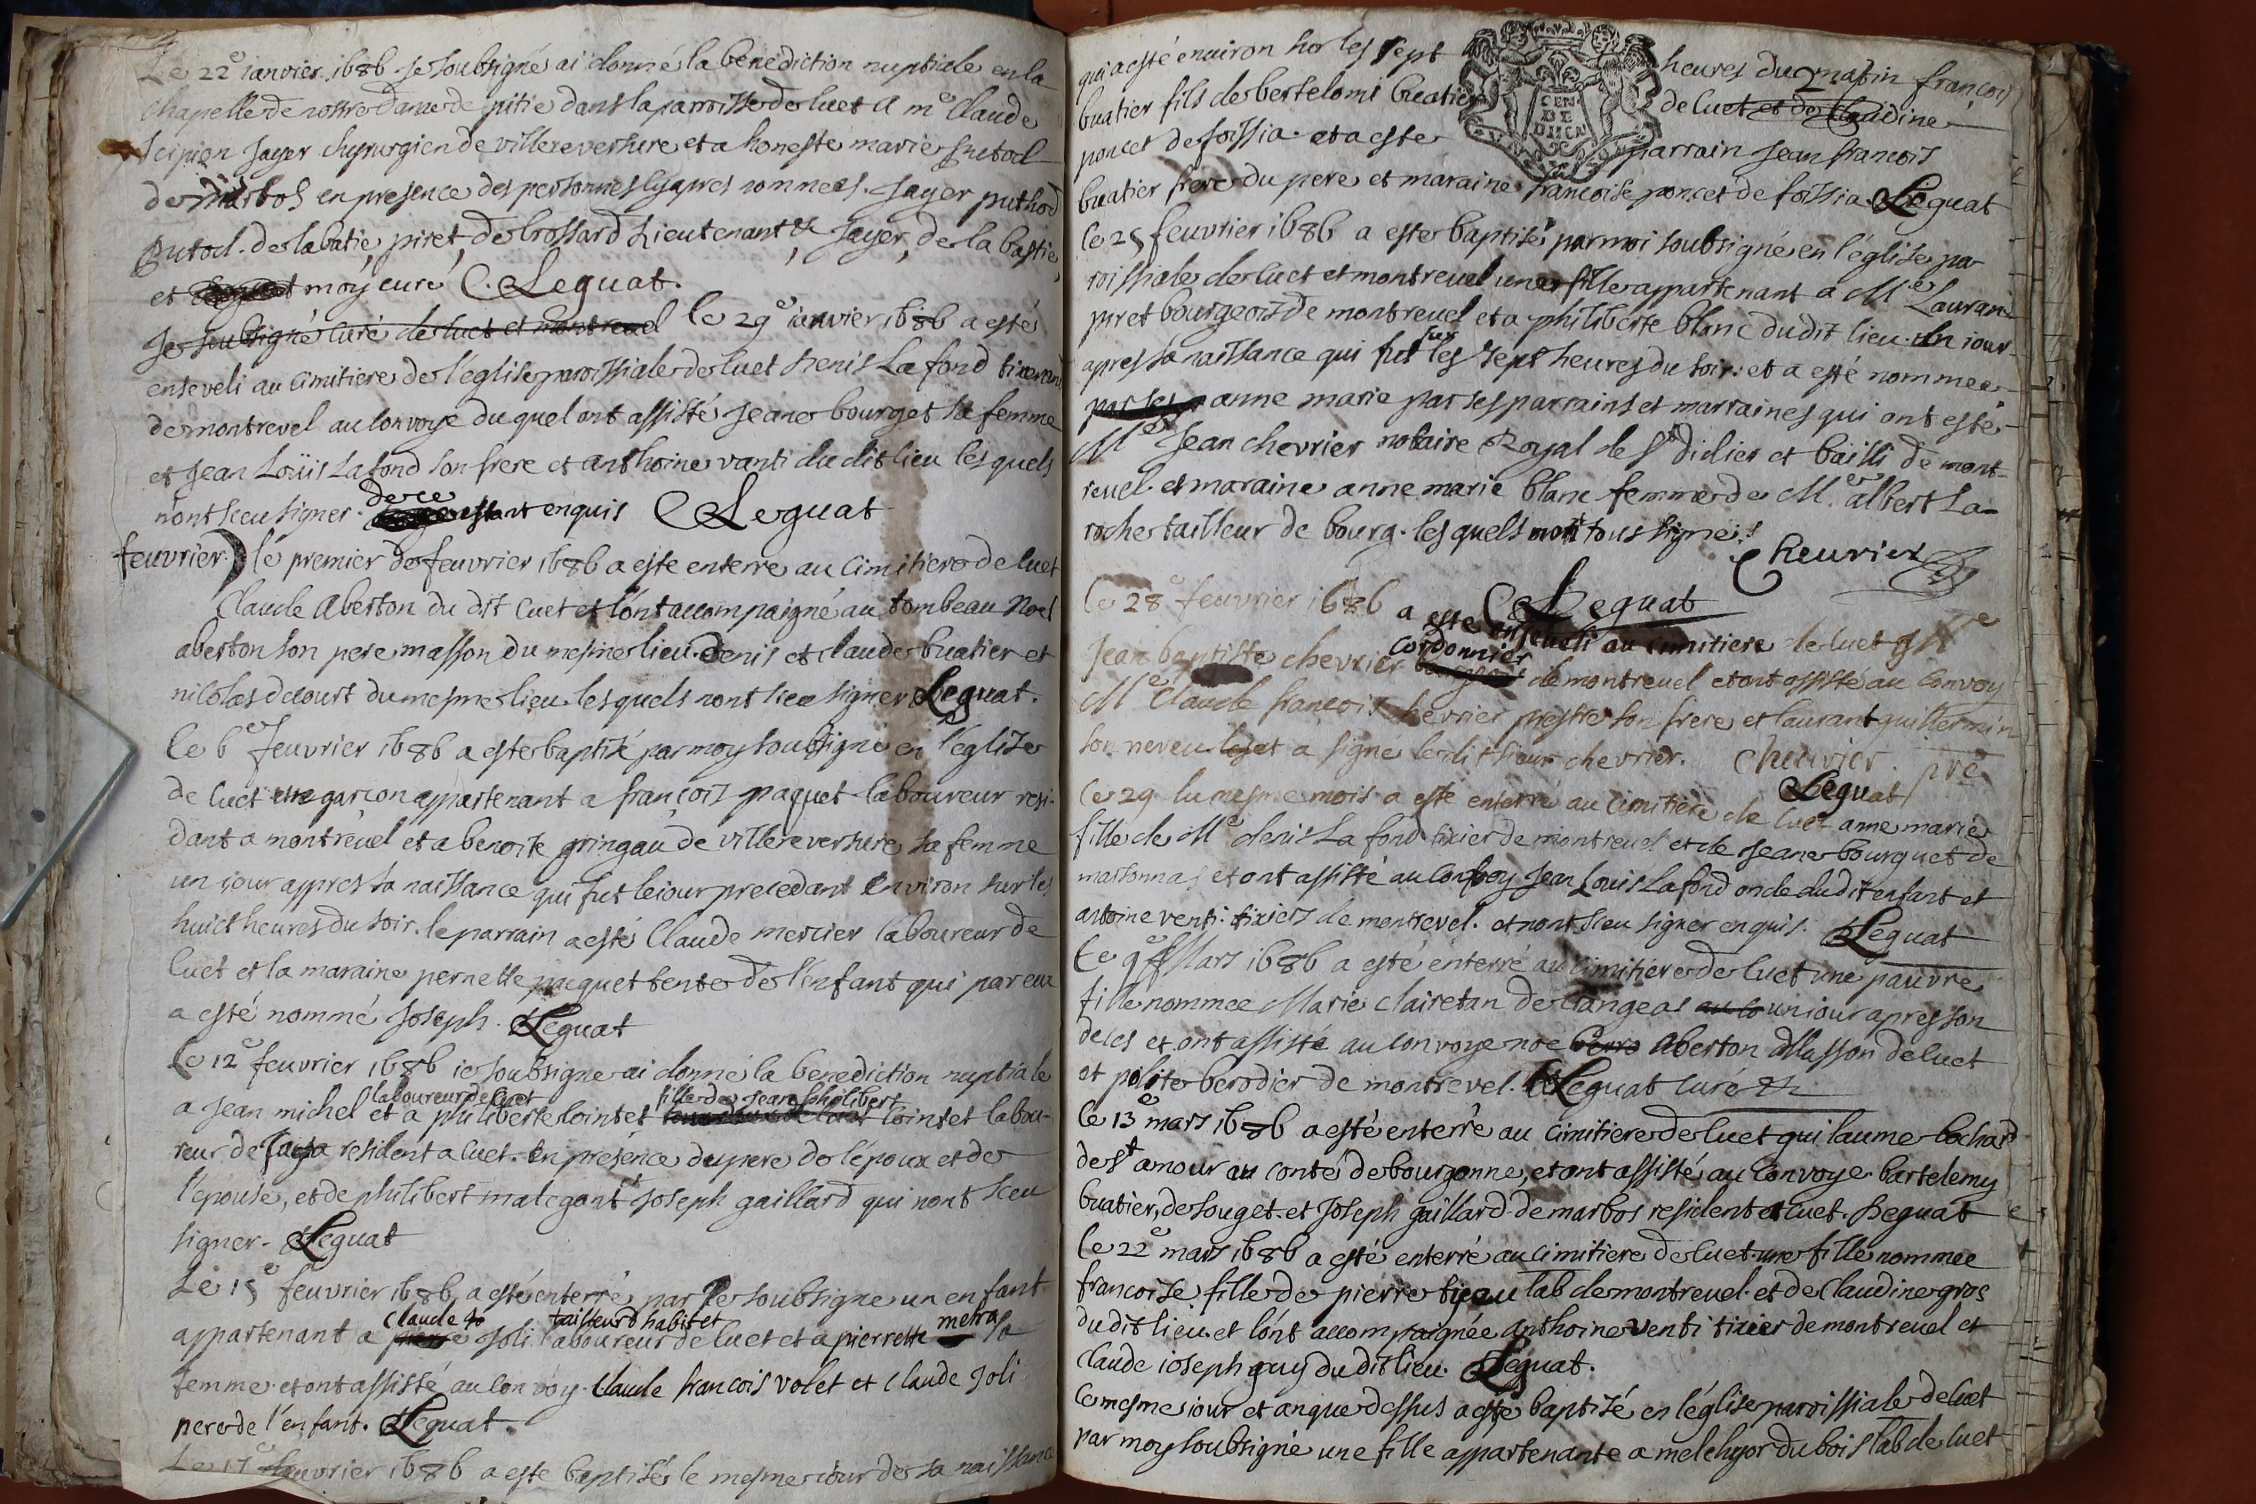 Le 22e ianvier 1686 Je soubsigné ai donné la benediction nuptiale en la
chapelle de nostre dame de pitie dans la paroisse de luet a me Claude
scipion Jayer chyrurgien de villereversure et a honeste marie putod
de marbos en presence des personnes cy apres nommees. Jayer puthod
Putod. de labatie, piret, de brossard Lieutenant Jayer, de la bastie,
et moy curé C. Leguat.
Je soubsigné curé de luet et montrevel le 29e ianvier 1686 a esté
enseveli au cimitiere de l'église paroissiale de luet denis La fond tixerand
de montrevel au convoye du quel ont assisté Jeane bourget sa femme
et Jean Loüis La fond son frere et anthoine vanti du dit lieu les quels
n'ont sceu signer de ce estant enquis CLeguat
feuvrier. le premier de feuvrier 1686 a este enterré au Cimitiere de luet
Claude Aberton du dit Cuet et l'ont accompaigné au tombeau Noel
aberton son pere masson du mesme lieu. denis et claude buatier et
nicolas decourt du mesme lieu. les quels nont sceu signer Leguat.
le 6e feuvrier 1686 a este baptizé par moy soubsigné en l'église
de Cuet un garcon appartenant a françois paquet laboureur resi-
dant a montrevel et a benoite gringau de villereversure sa femme
un iour appres sa naissance qui fut le iour precedant environ sur les
huict heures du soir. le parrain a esté Claude mercier laboureur de
Cuet et la maraine pernette paquet tente de l'enfant qui par eux
a esté nommé Joseph. CLeguat
le 12e feuvrier 1686 ie soubsigne ai donné la benediction nuptiale
laboureur de Cuet fille de Jean philibert
a Jean michel et a philiberte cointet cointet labou-
reur de resident a Cuet. En présence du pere de l'époux et de
l'épouse, et de philibert malcgont Joseph gaillard qui nont sceu
signer. CLeguat
Le 15e feuvrier 1686 a esté enterré par Je soubsigne un enfant
Claude tailleur d habit et metra
appartenant a Joli laboureur de luet et a pierrette sa
femme et ont assisté au convoy. Claude francois volet et Claude Joli
pere de l'enfant. CLeguat.
Le 17e feuvrier 1686 a este baptisé le mesme iour de sa naissance
qui a esté environ sur les sept heures du matin françois
buatier fils de bertelomi buatier de luet et de Claudine
poncet de foissia. et a este parrain Jean francois
buatier frere du pere et maraine francoise poncet de foissia. CLeguat
le 25 feuvrier 1686 a este baptisé par moi soubsigné en l'église pa
roissiale de Cuet et montrevel une fille appartenant a Me Lauran
piret bourgeois de montrevel et a philiberte blanc dudit lieu. un iour
sur
apres sa naissance qui fut les sept heures du soir. et a esté nommee
par ses anne marie par ses parrains et marraines qui ont esté
Me Jean chevrier notaire Royal de St didier et bailli de mont-
revel. et maraine anne marie blanc femme de Me albert La-
roche tailleur de bourg. les quels tous signé.
Chevrier
CLeguat
Le 28e feuvrier 1686 a este enseveli au cimitiere de luet
cordonnier
Jean baptiste chevrier de montrevel et ont assisté au Convoy
Me Claude françois chevrier prestre son frere et laurant guillermin
son neveu et a signe ledit sieur chevrier. Chevrier. pre
CLeguat
Le 29 du mesme mois a este enterré au cimitiere de Cuet anne marie
fille de Me denis La fond tixier de montrevel et de Jeane bourguet de
marsonnas et ont assisté au Convoy Jean Louis Lafond oncle dudit enfant et
antoine venti. tixiers de montrevel. et nont sceu signer enquis. CLeguat
Le 9e Mars 1686 a esté enterré au cimitiere de luet une pauvre
fille nommee Marie Clairetan de Cangeas un iour apres son
deces et ont assisté au convoye noe Aberton Masson de luet
et polite berodier de montrevel. CLeguat Curé
le 13e mars 1686 a esté enterré au Cimitiere de luet guilaume bochard
de St amour au conté de bourgonne, et ont assisté au Convoye bartelemy
buatier, de souget. et Joseph gaillard de marbos resident a Cuet. Leguat
le 22e mars 1686 a esté enterré au Cimitiere de Cuet une fille nommée
francoise fille de pierre lab de montrevel. et de Claudine gros
du dit lieu. et l'ont accompaignée anthoine venti tixier de montrevel et
Claude ioseph guy du dit lieu. CLeguat.
le mesme iour et an que dessus a este baptisé en l'église paroissiale de Cuet
par moy soubsigné une fille appartenante a melchyor du bois lab de luet